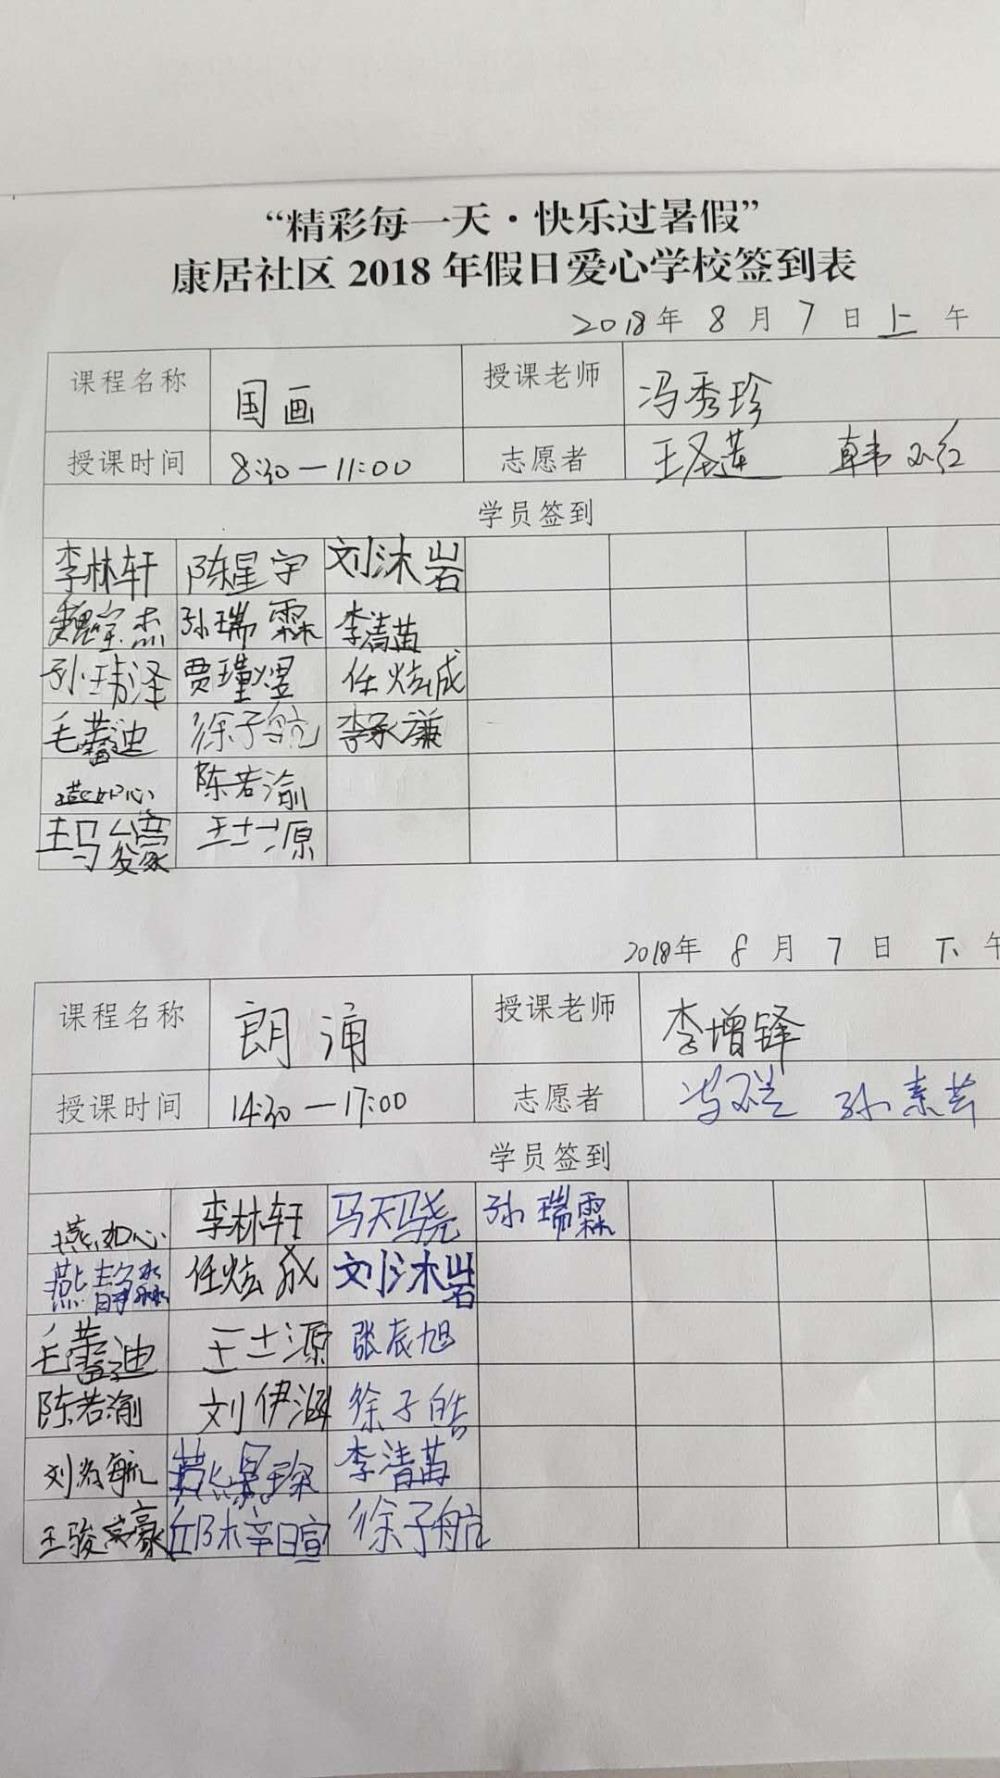 “精彩每一天·快乐过暑假”
康居社区 2018 年假日爱心学校签到表
2018年 8 月 7 日 上 午
课程名称 国画 授课老师 冯秀珍
授课时间 8:30—11:00 志愿者 王圣莲 韩
学员签到
李林轩 陈星宇 刘沐岩
魏宝杰 孙瑞霖 李清苗
孙玮泽 贾瑾煜 任炫诚
毛蕾迪 徐子航 李承谦
燕如心 陈若渝
王士源
2018年 8 月 7 日 下 午
课程名称 朗诵 授课老师 李增铎
授课时间 14:30—17:00 志愿者 孙素芸
学员签到
燕如心 李林轩 马天骁 孙瑞霖
燕静淼 任炫成 刘沐岩
毛蕾迪 王士源 张辰旭
陈若渝 刘伊涵 徐子皓
刘 航 燕景琛 李清苗
王骏豪 徐子航